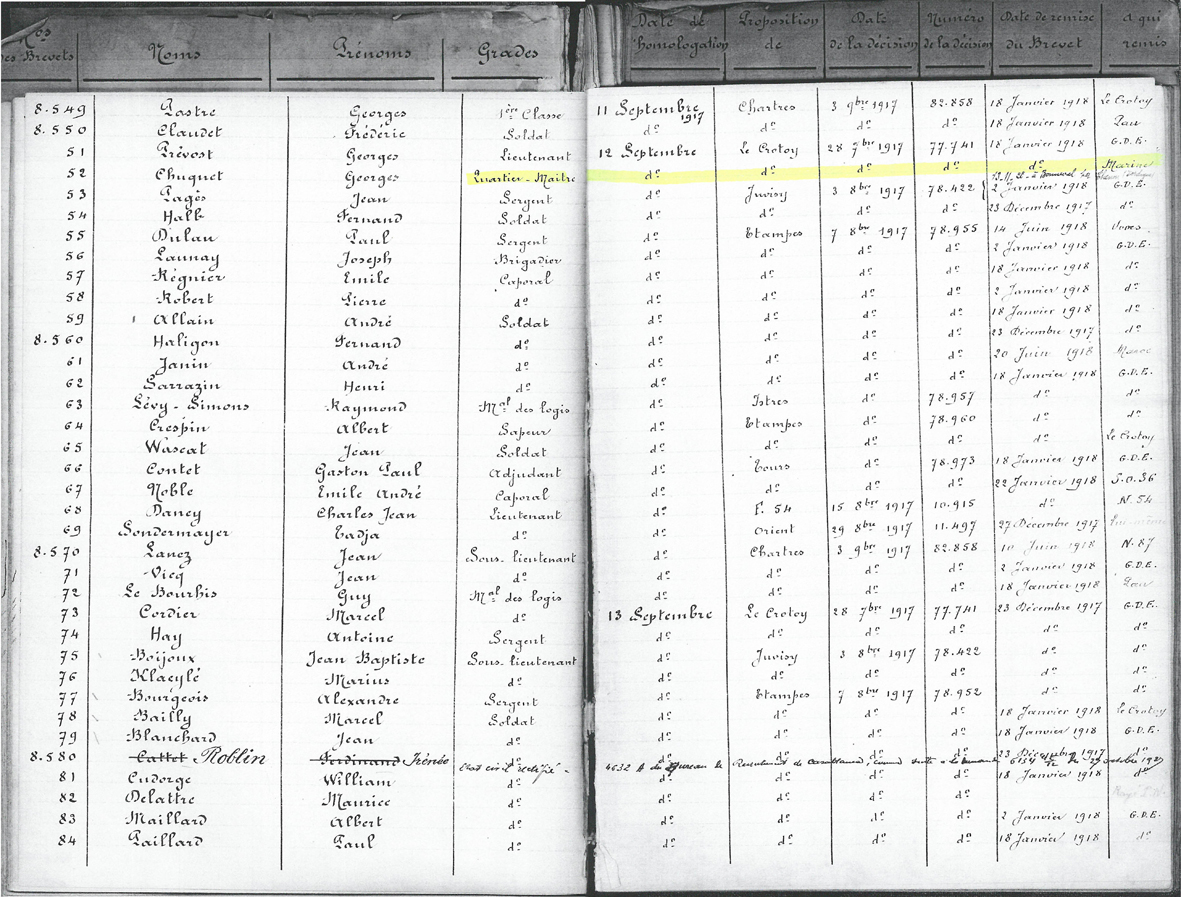 Nos des Brevets Noms Prénoms Grades Date de l'homologation Proposition de Date de la décision Numéro de la décision Date de remise du Brevet à qui remis
8.549 Pastre Georges 1ère Classe 11 Septembre 1917 Chartres 3 9bre 1917 82.858 18 Janvier 1918 Le Crotoy
8.550 Claudet Frédéric Soldat do do do do 18 Janvier 1918 Pau
51 Prévost Georges Lieutenant 12 Septembre Le Crotoy 28 7bre 1917 77.741 18 Janvier 1918 G.D.E.
52 Chuquet Georges Quartier-Maître do do do do do Marine
53 Pagès Jean Sergent do Juvisy 3 8bre 1917 78.422 2 Janvier 1918 G.D.E.
54 Halb Fernand Soldat do do do do 23 Décembre 1917 do
55 Dulau Paul Sergent do Etampes 7 8bre 1917 78.955 14 Juin 1918 Voves
56 Launay Joseph Brigadier do do do do 2 Janvier 1918 G.D.E.
57 Régnier Emile Caporal do do do do 18 Janvier 1918 do
58 Robert Pierre do do do do do 2 Janvier 1918 do
59 Allain André Soldat do do do do 18 Janvier 1918 do
8.560 Haligon Fernand do do do do do 23 Décembre 1917 do
61 Janin André do do do do do 20 Juin 1918 Maroc
62 Sarrazin Henri do do do do do 18 Janvier 1918 G.D.E.
63 Lévy-Simons Raymond Mal des logis do Istres do 78.957 do do
64 Crespin Albert Sapeur do Etampes do 78.960 do do
65 Wascat Jean Soldat do do do do do Le Crotoy
66 Contet Gaston Paul Adjudant do Tours do 78.973 18 Janvier 1918 G.D.E.
67 Noble Emile André Caporal do do do do 22 Janvier 1918 S.O.36
68 Dancy Charles Jean Lieutenant do F. 54 15 8bre 1917 10.915 do N.54
69 Sondermayer Tadja do do Orient 29 8bre 1917 11.497 27 Décembre 1917 Lui-même
8.570 Lanez Jean Sous-lieutenant do Chartres 3 9bre 1917 82.858 10 Juin 1918 N.87
71 Vicq Jean do do do do do 2 Janvier 1918 G.D.E.
72 Le Bourhis Guy Mal des logis do do do do 18 Janvier 1918 Pau
73 Cordier Marcel do 13 Septembre Le Crotoy 28 7bre 1917 77.741 23 Décembre 1917 G.D.E.
74 Hay Antoine Sergent do do do do do do
75 Boijoux Jean Baptiste Sous-lieutenant do Juvisy 3 8bre 1917 78.422 do do
76 Klaeylé Marius do do do do do do do
77 Bourgeois Alexandre Sergent do Etampes 7 8bre 1917 78.952 do do
78 Bailly Marcel Soldat do do do do 18 Janvier 1918 Le Crotoy
79 Blanchard Jean do do do do do 18 Janvier 1918 G.D.E.
8.580 Cattet Roblin Ferdinand Irénée do do do do do 23 Décembre 1917 do
Etat civil rectifié - 4632 du Bureau de Recrutement de Casablanca
81 Cudorge William do do do do do 18 Janvier 1918 do
82 Delattre Maurice do do do do do
83 Maillard Albert do do do do do 2 Janvier 1918 G.D.E.
84 Paillard Paul do do do do do 18 Janvier 1918 do